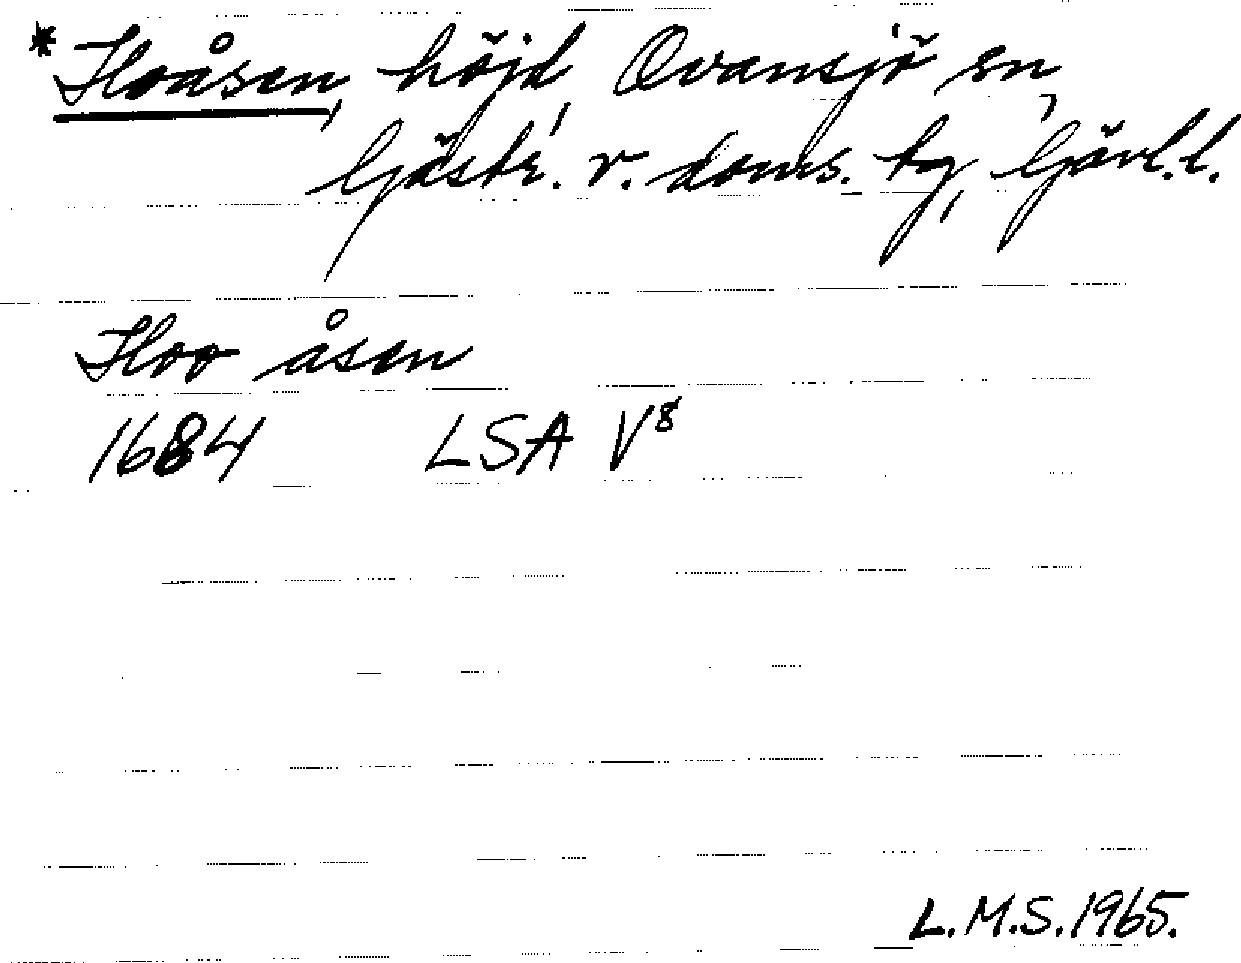 *Hoåsen, höjd, Ovansjö sn,
Gästr. v. doms. tg, Gävl.l.
Hoo åsen
1684 LSA V⁸
L.M.S. 1965.